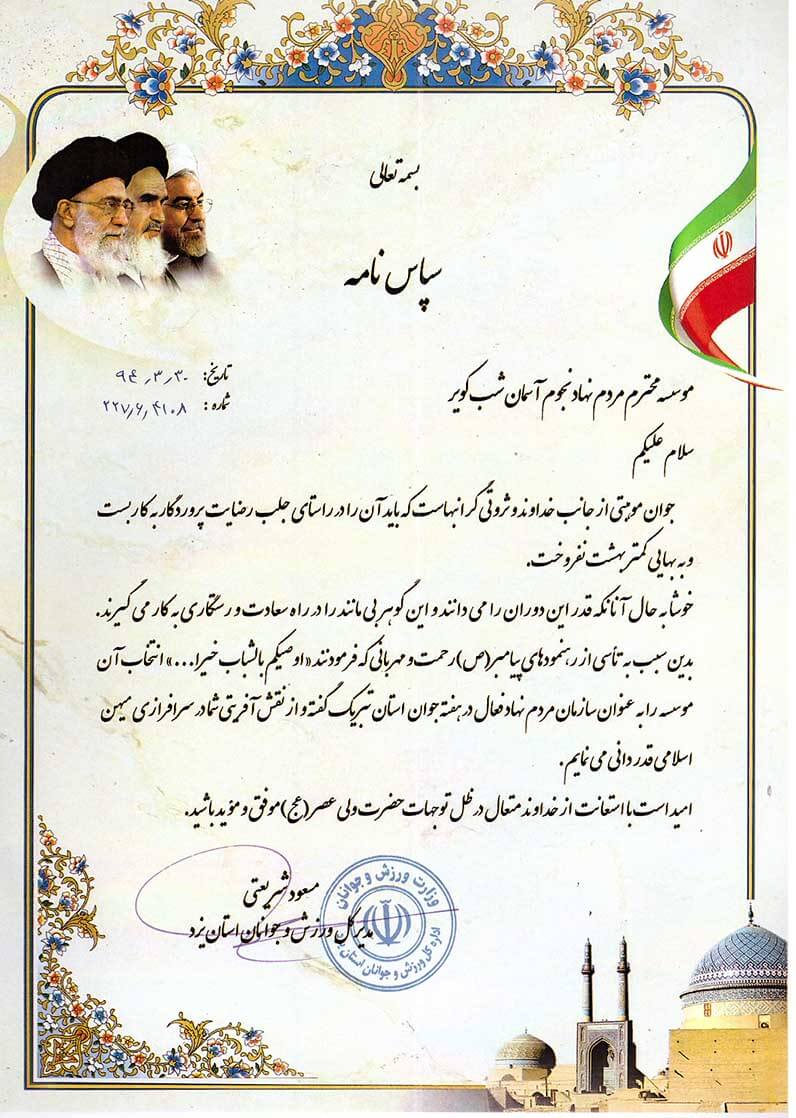 بسمه تعالی
سپاس نامه
تاریخ: ۹۴٫۳٫۳۰
شماره: ۲۲۷٫۶٫۴۱۰۸
موسسه محترم مردم نهاد نجوم آسمان شب کویر
سلام علیکم
جوان موهبتی از جانب خداوند و ثروتی گرانبهاست که باید آن را در راستای جلب رضایت پروردگار به کار بست
و به بهایی کمتر بهشت نفروخت.
خوشا به حال آنانکه قدر این دوران را می دانند و این گوهر بی مانند را در راه سعادت و رستگاری به کار می گیرند.
بدین سبب به تأسی از رهنمودهای پیامبر(ص) رحمت و مهربانی که فرمودند «اوصیکم بالشباب خیرا...» انتخاب آن
موسسه را به عنوان سازمان مردم نهاد فعال در هفته جوان استان تبریک گفته و از نقش آفرینی شما در سرافرازی میهن
اسلامی قدردانی می نمایم.
امید است با استعانت از خداوند متعال در ظل توجهات حضرت ولی عصر(عج) موفق و مؤید باشید.
مسعود شریعتی
مدیر کل ورزش و جوانان استان یزد
وزارت ورزش و جوانان
اداره کل ورزش و جوانان استان